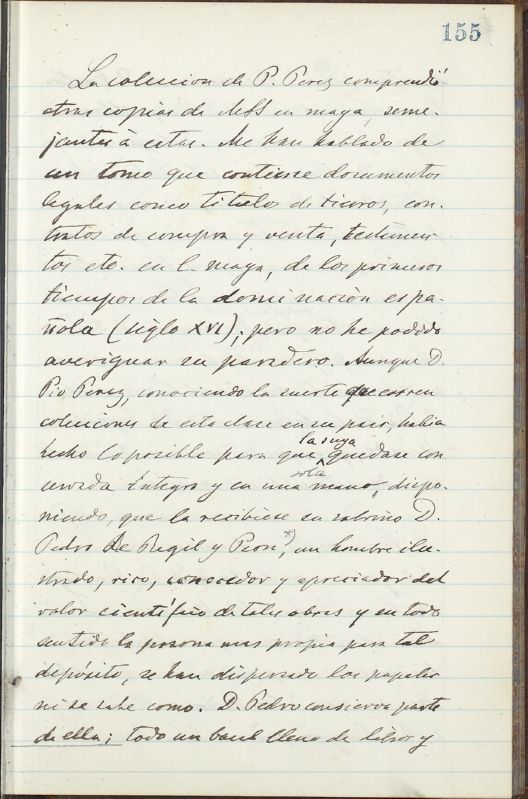 155
La coleccion de P. Perez comprendió
otras copias de MSS en maya, seme-
jantes à estas. Me han hablado de
un tomo que contiene documentos
legales como titulos de tierras, con-
tratos de compra y venta, testamen-
tos etc. en l. maya, de los primeros
tiempos de la dominación espa-
ñola (siglo XVI); pero no he podido
averiguar su paradero. Aunque D.
Pio Perez, conociendo la suerte que corren
colecciones de esta clase en su pais, habia
hecho lo posible para que la suya quedase con
servada íntegra y en una sola mano, dispo-
niendo, que la recibiese su sobrino D.
Pedro de Regil y Peon *), un hombre ilu-
strado, rico, conocedor y apreciador del
valor científico de tales obras y en todo
sentido la persona mas propia para tal
depósito, se han dispersado los papeles
ni se sabe como. D. Pedro conserva parte
de ella; todo un baul lleno de libros y